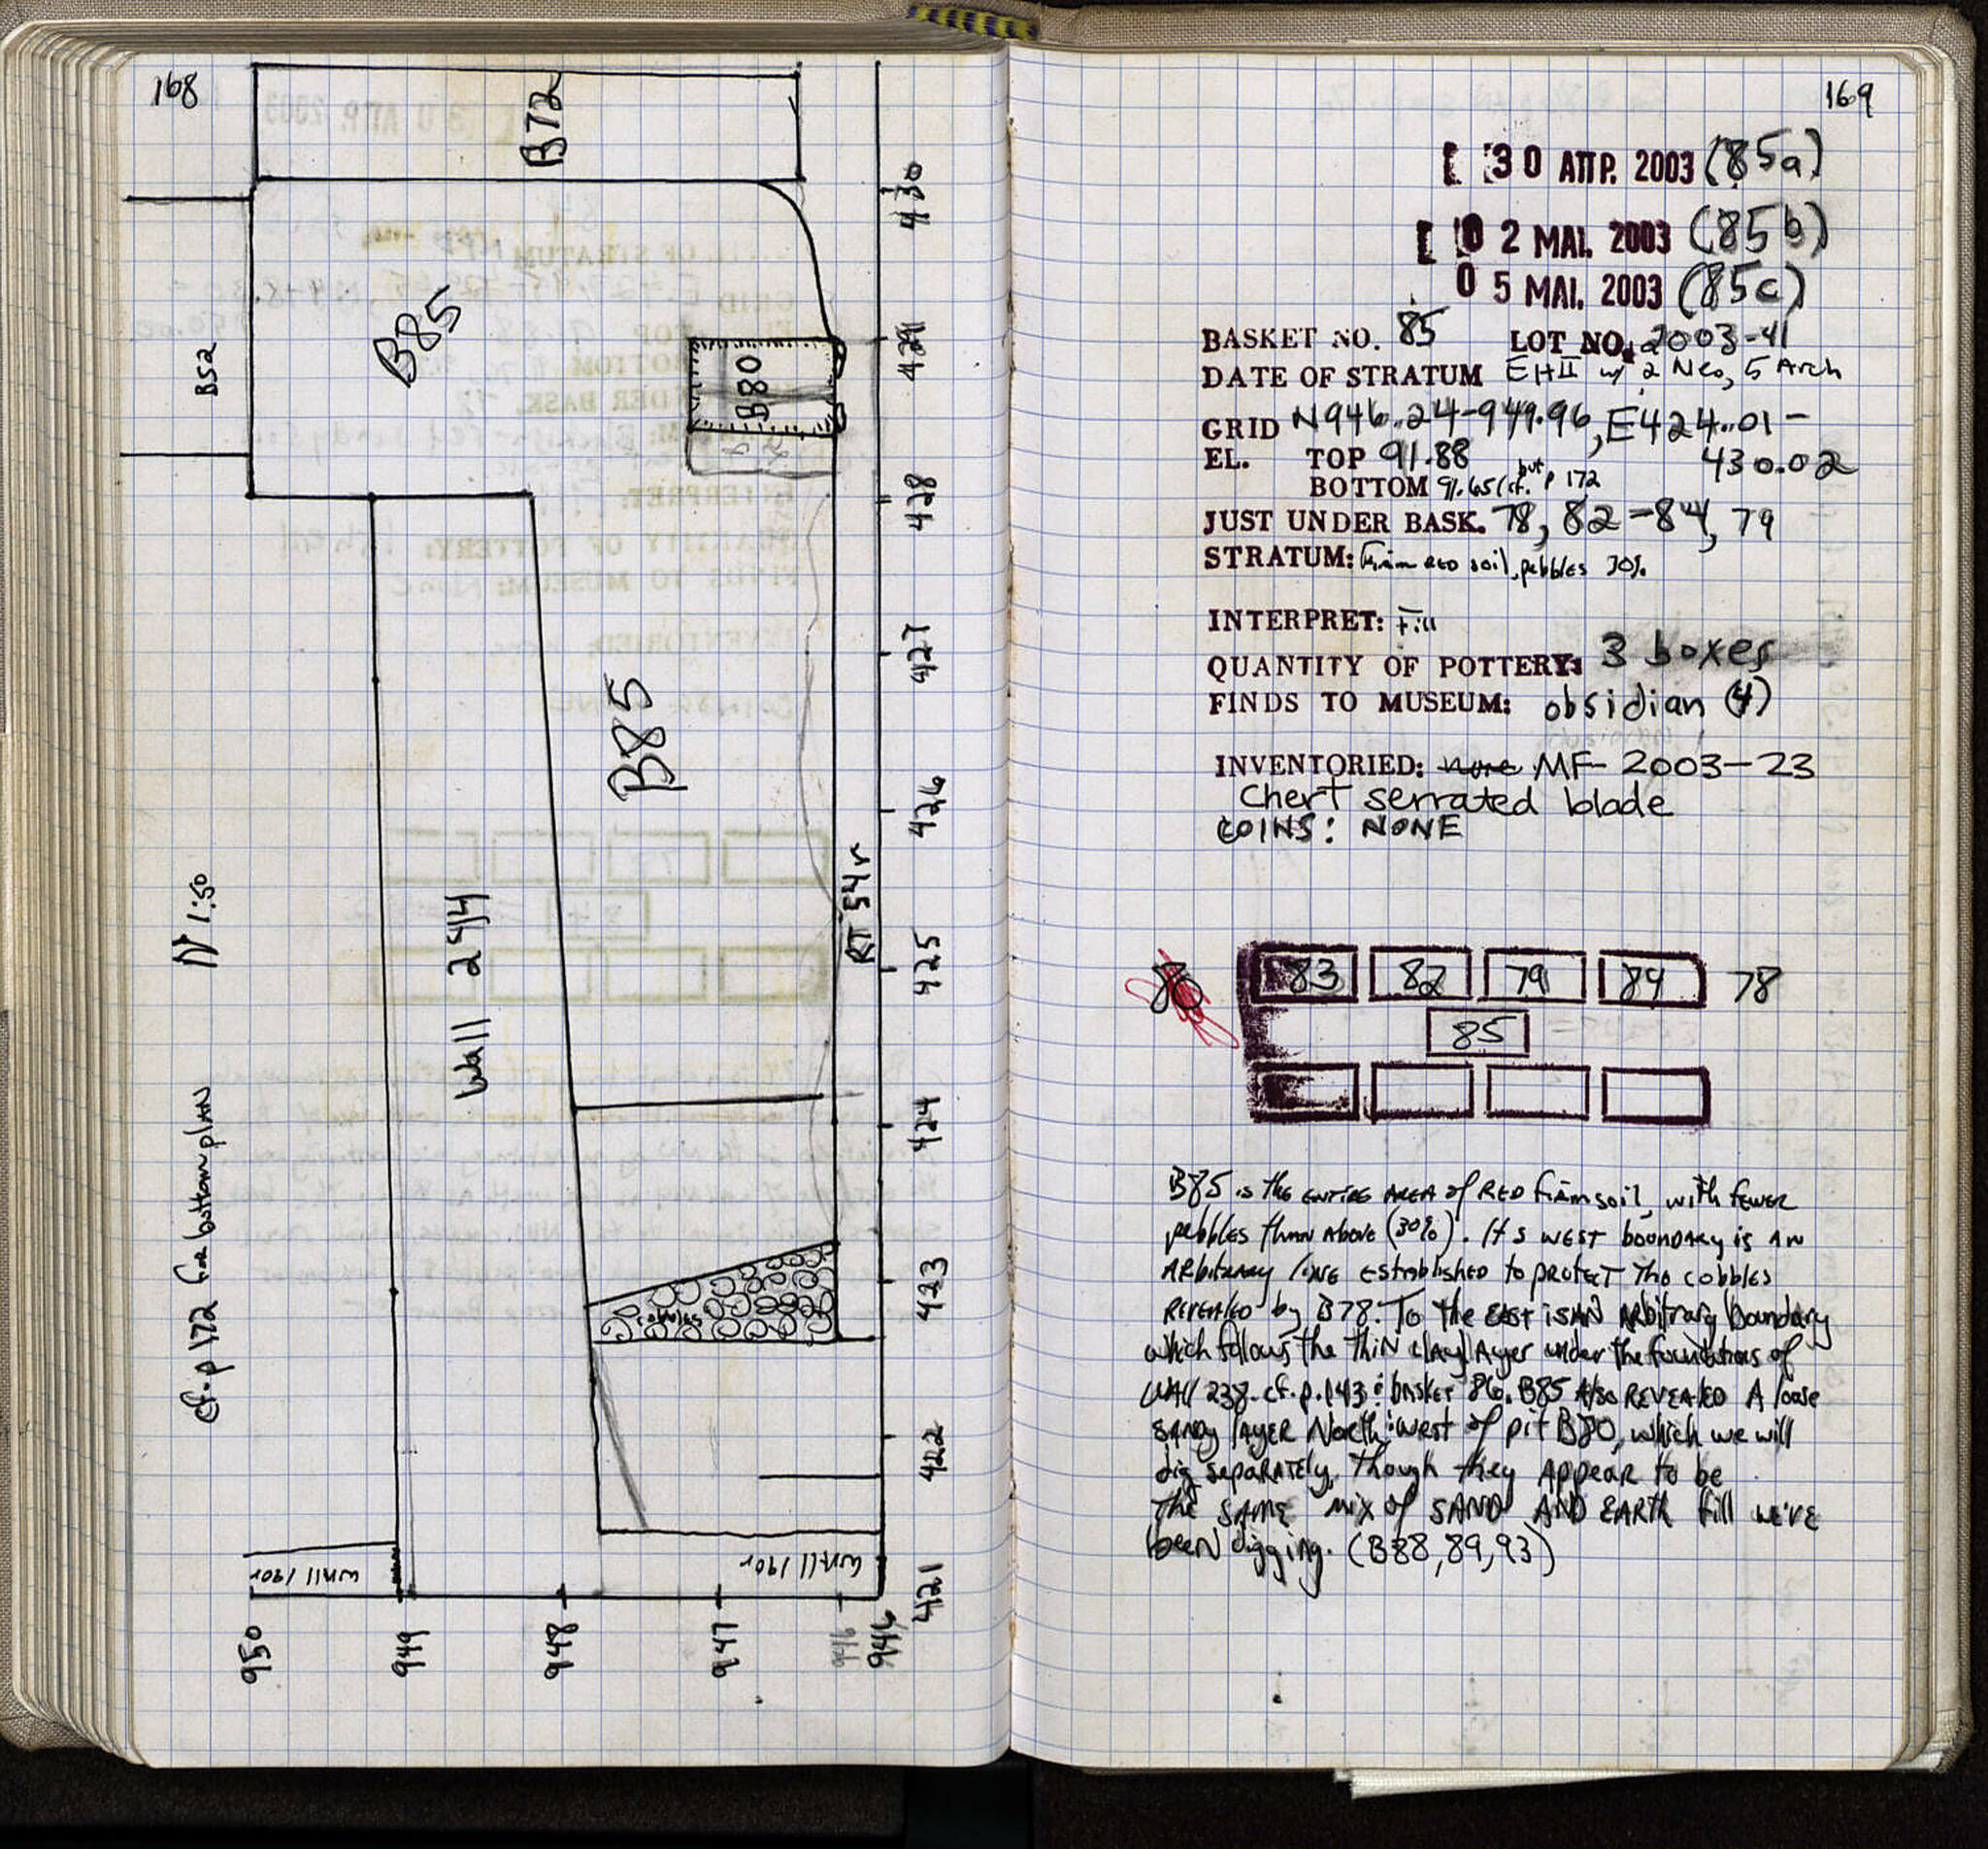 168
B72
430
B85
B52
429
B80
428
427
B85
426
RT 54r
1:50
Wall 244
425
424
cf. p 172 for bottom plan
423
cobbles
422
Wall 190r
Wall 190r
421
950
949
948
947
946
946
169
30 ΑΠΡ. 2003 (85a)
02 ΜΑΙ. 2003 (85b)
05 ΜΑΙ. 2003 (85c)
BASKET NO. 85 LOT NO. 2003-41
DATE OF STRATUM EHII w/ 2 Neo, 5 Arch
GRID N946.24-949.96, E424.01-
430.02
EL. TOP 91.88
BOTTOM 91.65 (cf. but p 172
JUST UNDER BASK. 78, 82-84, 79
STRATUM: Firm red soil, pebbles 30%
INTERPRET: Fill
QUANTITY OF POTTERY: 3 boxes
FINDS TO MUSEUM: obsidian (4)
INVENTORIED: none MF-2003-23
Chert serrated blade
COINS: NONE
86 83 82 79 84 78
85
B85 is the entire area of red firm soil, with fewer
pebbles than above (30%). It's west boundary is an
arbitrary line established to protect the cobbles
revealed by B78. To the east is an arbitrary boundary
which follows the thin clay layer under the foundations of
wall 238. cf. p. 143 & basket 86. B85 also revealed a loose
sandy layer North & west of pit B80, which we will
dig separately, though they appear to be
the same mix of sand and earth fill we've
been digging. (B88, 89, 93)